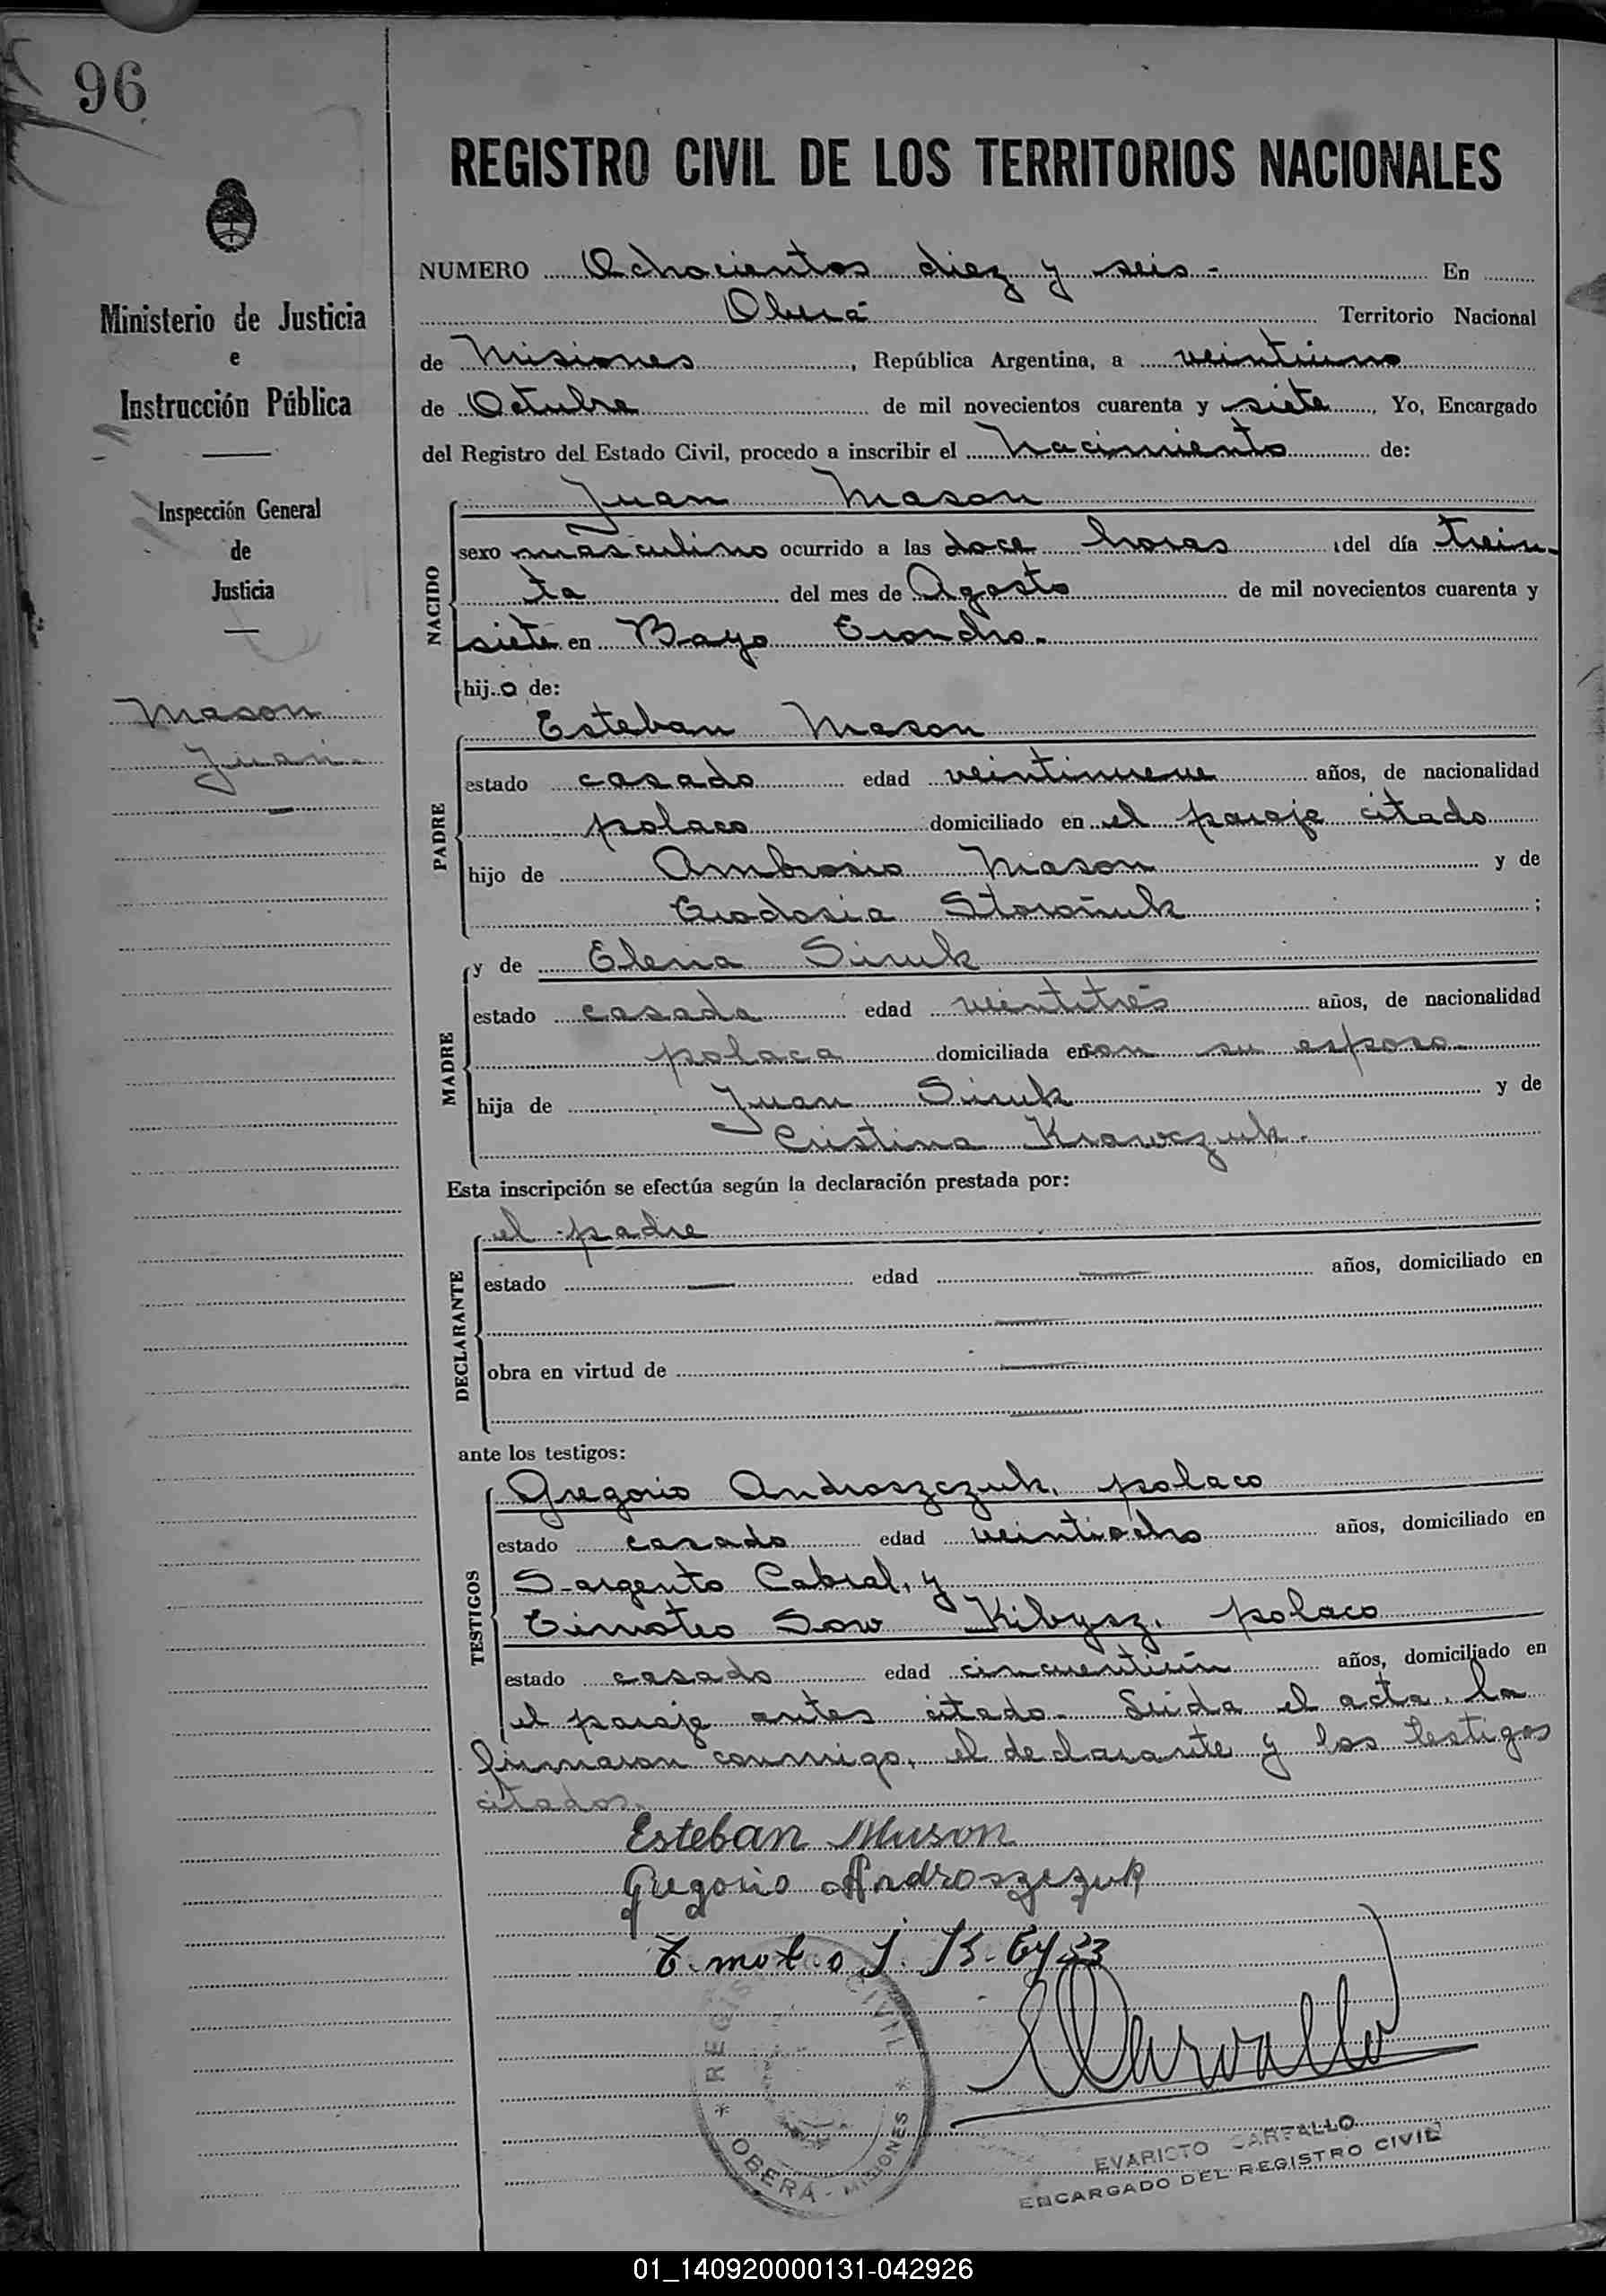 96
REGISTRO CIVIL DE LOS TERRITORIOS NACIONALES
Ministerio de Justicia
e
Instrucción Pública
Inspección General
de
Justicia
Mason
Juan.
NUMERO Ochocientos diez y seis - En
Oberá Territorio Nacional
de Misiones, República Argentina, a veintiuno
de Octubre de mil novecientos cuarenta y siete, Yo, Encargado
del Registro del Estado Civil, procedo a inscribir el Nacimiento de:
NACIDO
Juan Mason
sexo masculino ocurrido a las doce horas del día trein-
ta del mes de Agosto de mil novecientos cuarenta y
siete en Bayo Troncho.
hijo de:
PADRE
Esteban Mason
estado casado edad veintinueve años, de nacionalidad
polaco domiciliado en el paraje citado
hijo de Ambrosio Mason y de
;
MADRE
y de Elena
estado casada edad veintitrés años, de nacionalidad
polaca domiciliada en con su esposo.
hija de Juan y de
Cristina Krawczuk.
Esta inscripción se efectúa según la declaración prestada por:
DECLARANTE
el padre
estado — edad — años, domiciliado en
—
obra en virtud de —
—
ante los testigos:
TESTIGOS
Gregorio Androszczuk, polaco
estado casado edad veintiocho años, domiciliado en
Sargento Cabral, y
Timoteo Sow Kibysz, polaco
estado casado edad cincuentiún años, domiciliado en
el paraje antes citado. Leida el acta, la
firmaron conmigo, el declarante y los testigos
citados.
Esteban Muson
Gregorio Androszczuk
REGISTRO CIVIL
* OBERÁ - MISIONES *
EVARISTO CARVALLO
ENCARGADO DEL REGISTRO CIVIL
01_140920000131-042926